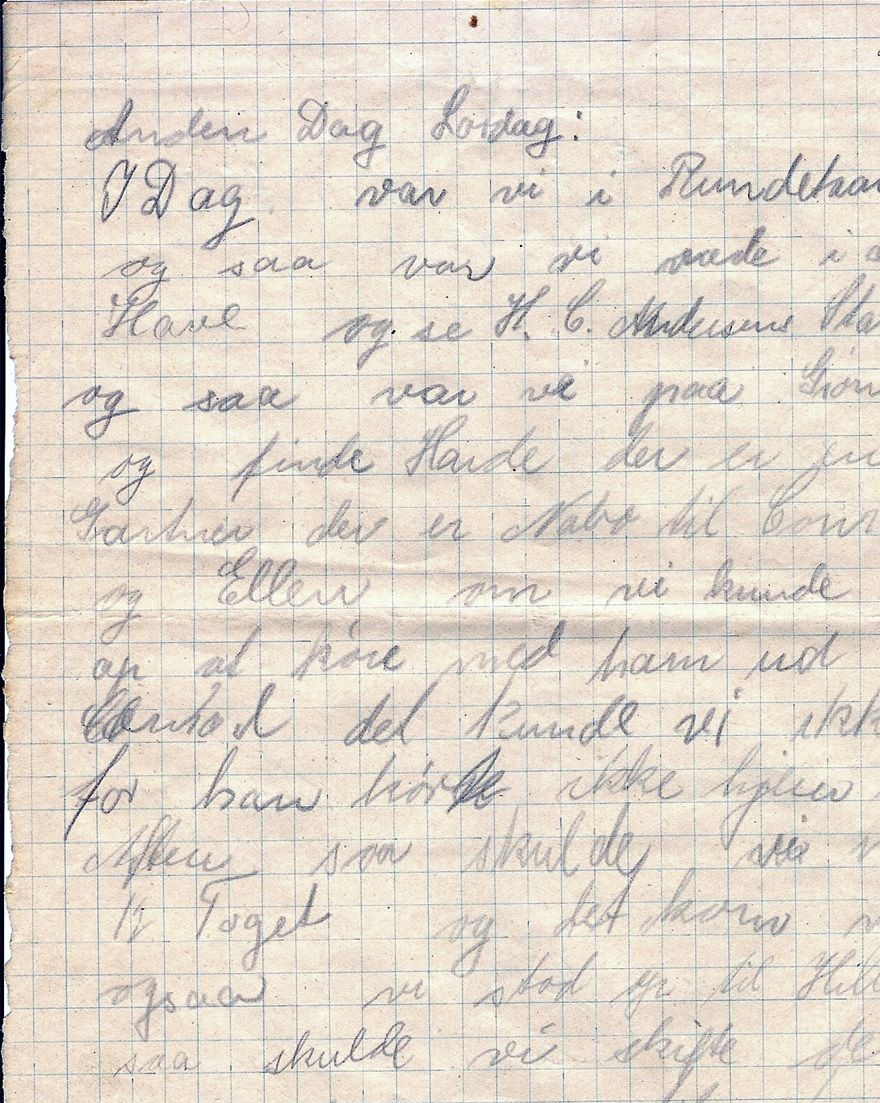 Anden Dag Lørdag:
I Dag var vi i Rundetaar
og saa var vi i
Have og se H. C. Andersens Sta
og saa var vi paa Grøn
og finde Harde der er en
Gartner der er Nabo til Con
og Ellen om vi kunde
op at køre med ham ud
det kunde vi ikk
for han kørte ikke hjem
Aften saa skulde vi
Toget og det kom
ogsaa vi stod op til Hill
saa skulde vi skifte